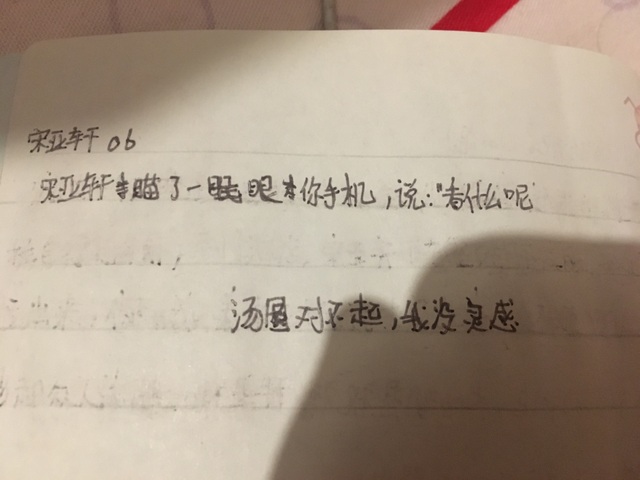 宋亚轩 06
宋亚轩瞄了一眼你手机,说:"看什么呢
汤圆对不起,我没灵感